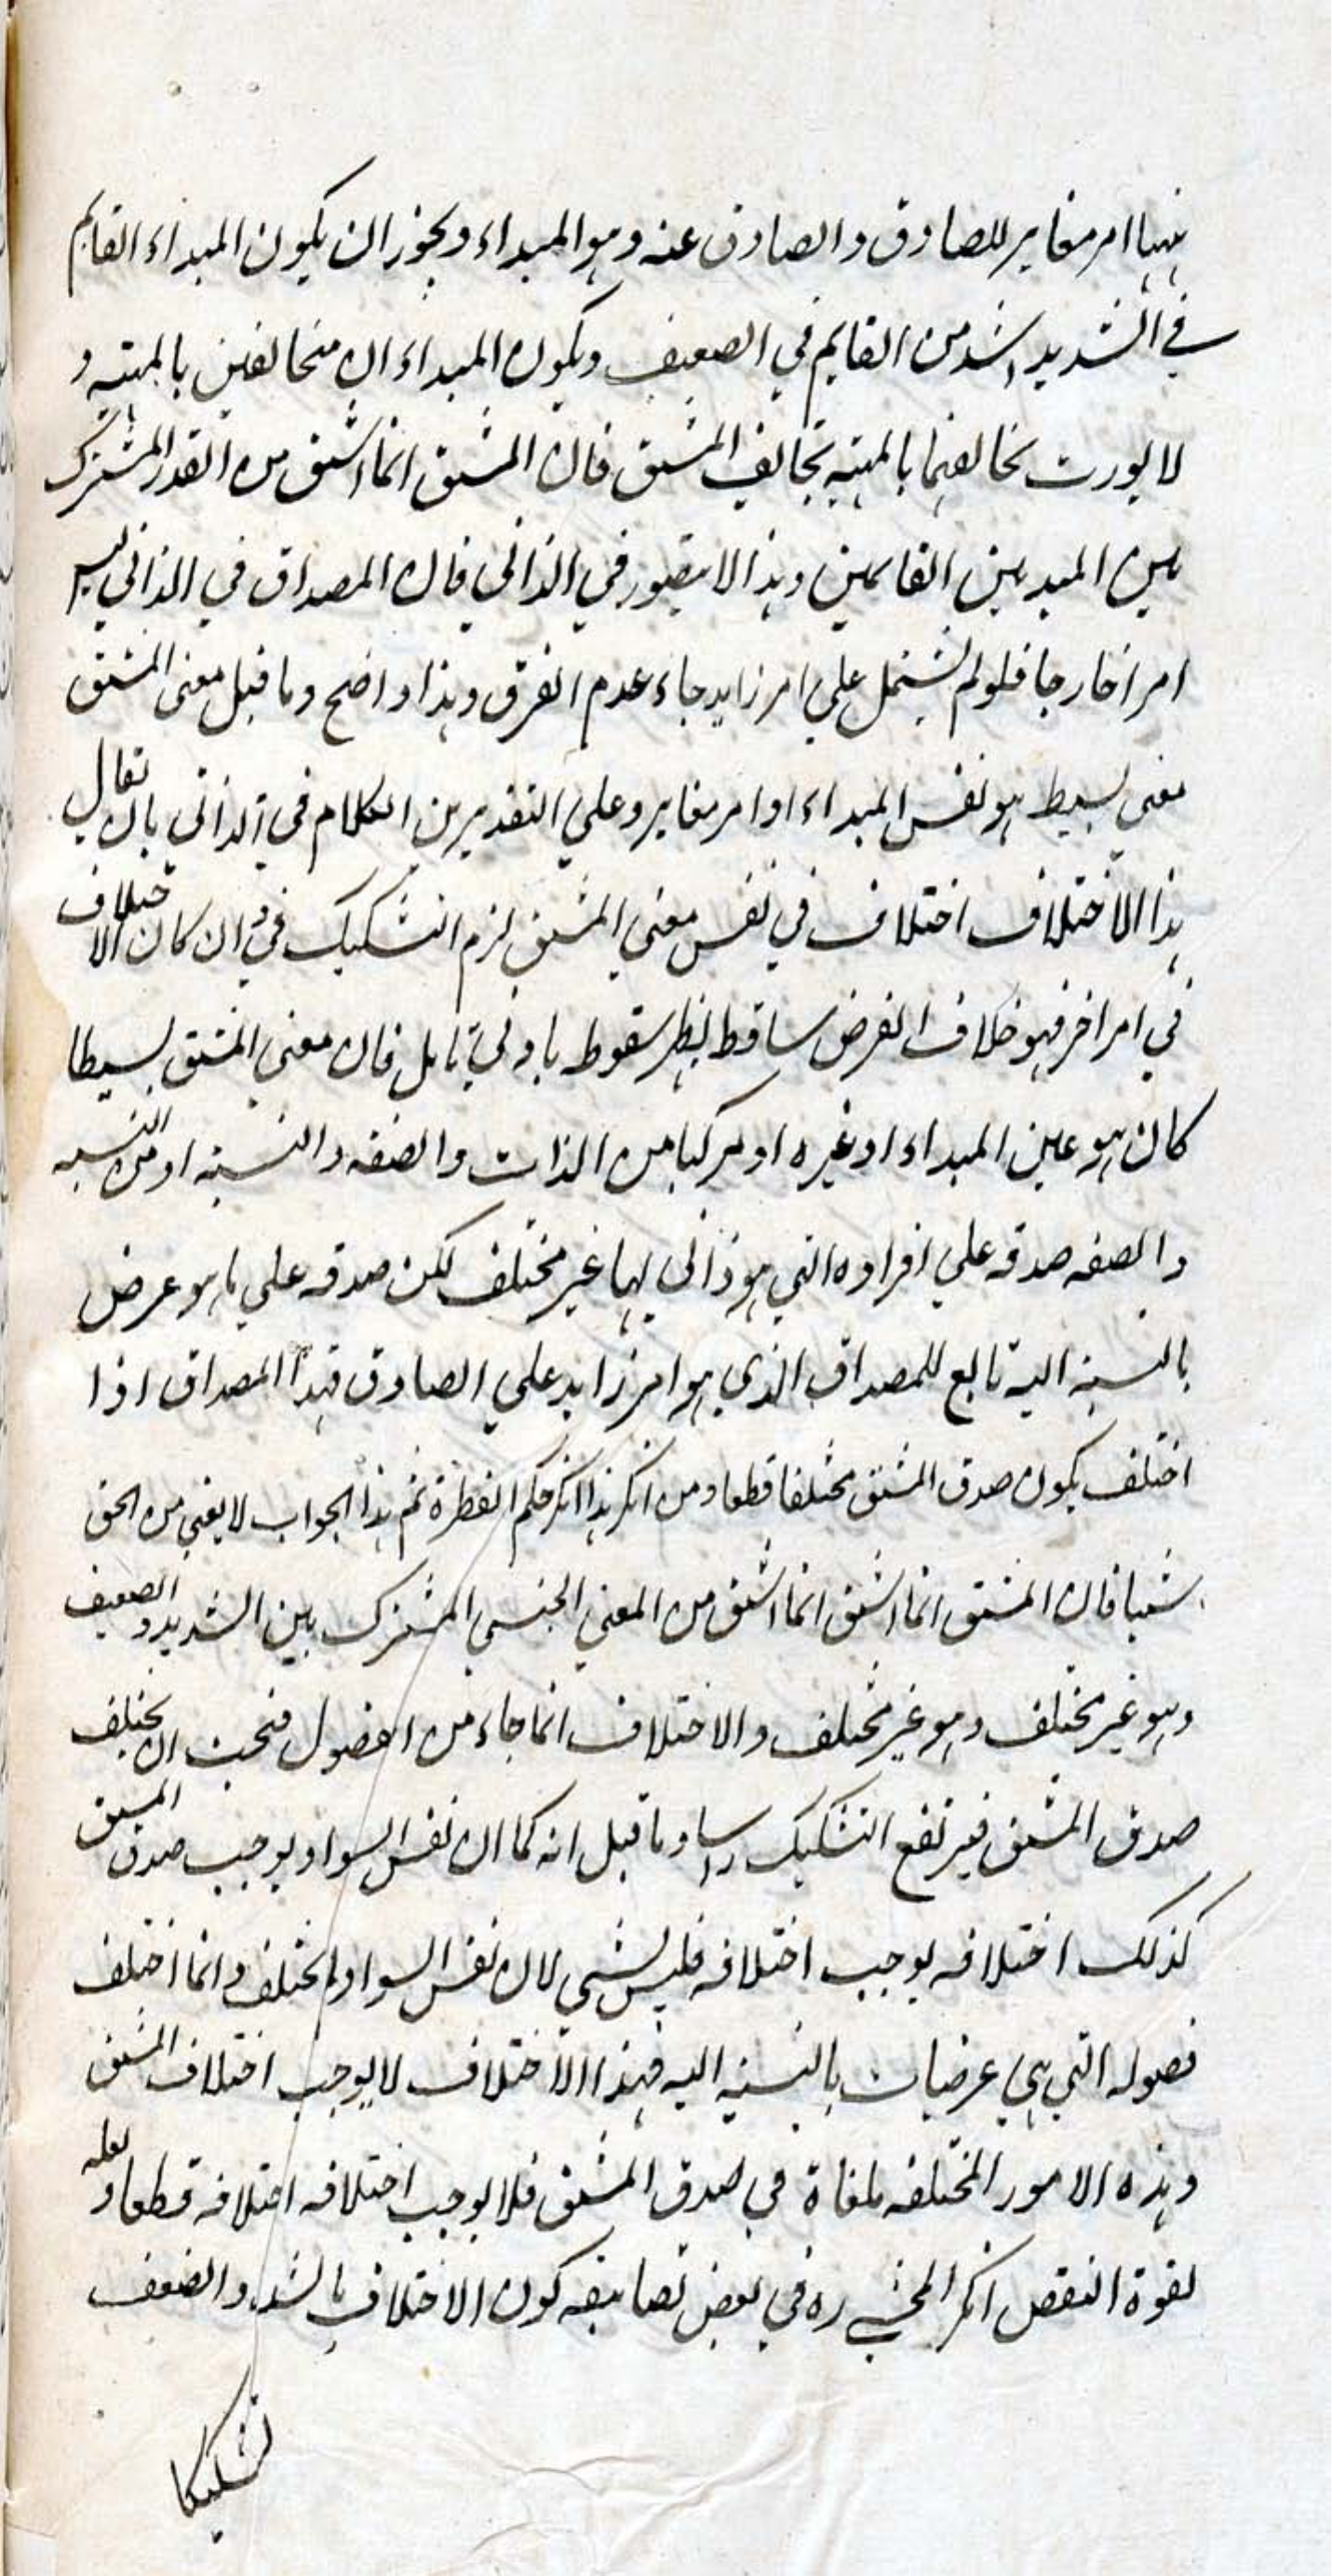 فيها امر مغاير للصادق والصادق عنه وهو المبداء ويجوز ان يكون المبداء القايم
في الشديد اشد من القايم في الضعيف ويكون المبداء ان متخالفين بالمهية و
لا يورث تخالفهما بالمهية تخالف المشتق فان المشتق انما اشتق من القدر المشترك
بين المبدئين القائمين وهذا لا يتصور في الذاتي فان المصداق في الذاتي ليس
امرا خارجا فلو لم يشتمل علي امر زايد جاء عدم الفرق وهذا واضح وما قيل معنى المشتق
معني بسيط هو نفس المبداء او امر مغاير وعلي التقديرين الكلام في الذاتي بان يقال
هذا الاختلاف اختلاف في نفس معني المشتق لزم التشكيك فيه وان كان الاختلاف
في امر اخر فهو خلاف الفرض ساقط يظهر سقوطه بادني تامل فان معني المشتق بسيطا
كان هو عين المبداء او غيره او مركبا من الذات والصفه والنسبة او من النسبه
والصفه صدقه علي افراده التي هو ذاتى لها غير مختلف لكن صدقه علي ما هو عرض
بالنسبة اليه تابع للمصداق الذي هو امر زايد علي الصادق فهذا المصداق اذا
اختلف يكون صدق المشتق مختلفا قطعا ومن انكر هذا انكر حكم الفطرة ثم هذا الجواب لا يغني من الحق
شيئا فان المشتق انما اشتق انما اشتق من المعني الجنسي المشترك بين الشديد والضعيف
وهو غير مختلف وهو غير مختلف والاختلاف انما جاء من الفصول فيجب ان يختلف
صدق المشتق فيرتفع التشكيك راسا وما قيل انه كما ان نفس السواد يوجب صدق المشتق
كذلك اختلافه يوجب اختلافه فليس بشي لان نفس السواد لم يختلف وانما اختلف
فصوله التي هي عرضيات بالنسبة اليه فهذا الاختلاف لا يوجب اختلاف المشتق
وهذه الامور المختلفه ملغاة في صدق المشتق فلا يوجب اختلافه اختلافه قطعا ولعله
لقوة النقض انكر المحشي ره في بعض تصانيفه كون الاختلاف بالشدة والضعف
تشكيكا